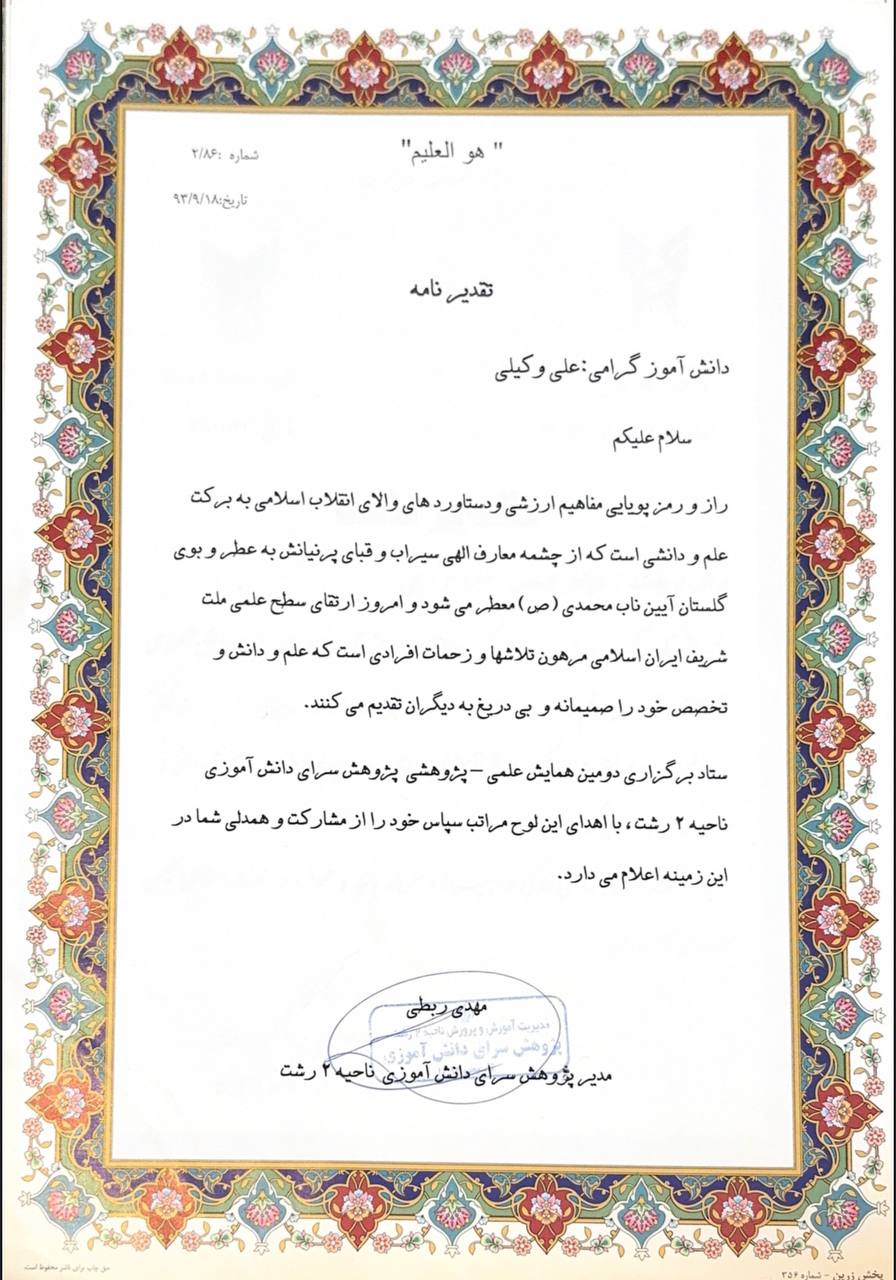 " هو العلیم"
شماره :۲/۸۶
تاریخ:۹۳/۹/۱۸
تقدیر نامه
دانش آموز گرامی:علی وکیلی
سلام علیکم
راز و رمز پویایی مفاهیم ارزشی ودستاورد های والای انقلاب اسلامی به برکت
علم و دانشی است که از چشمه معارف الهی سیراب و قبای پرنیانش به عطر و بوی
گلستان آیین ناب محمدی (ص) معطر می شود و امروز ارتقای سطح علمی ملت
شریف ایران اسلامی مرهون تلاشها و زحمات افرادی است که علم و دانش و
تخصص خود را صمیمانه و بی دریغ به دیگران تقدیم می کنند.
ستاد برگزاری دومین همایش علمی –پژوهشی پژوهش سرای دانش آموزی
ناحیه ۲ رشت، با اهدای این لوح مراتب سپاس خود را از مشارکت و همدلی شما در
این زمینه اعلام می دارد.
مهدی ربطی
مدیریت آموزش و پرورش ناحیه ۲ رشت
پژوهش سرای دانش آموزی
مدیر پژوهش سرای دانش آموزی ناحیه ۲ رشت
حق چاپ برای ناشر محفوظ است.
پخش زرین - شماره ۳۵۶